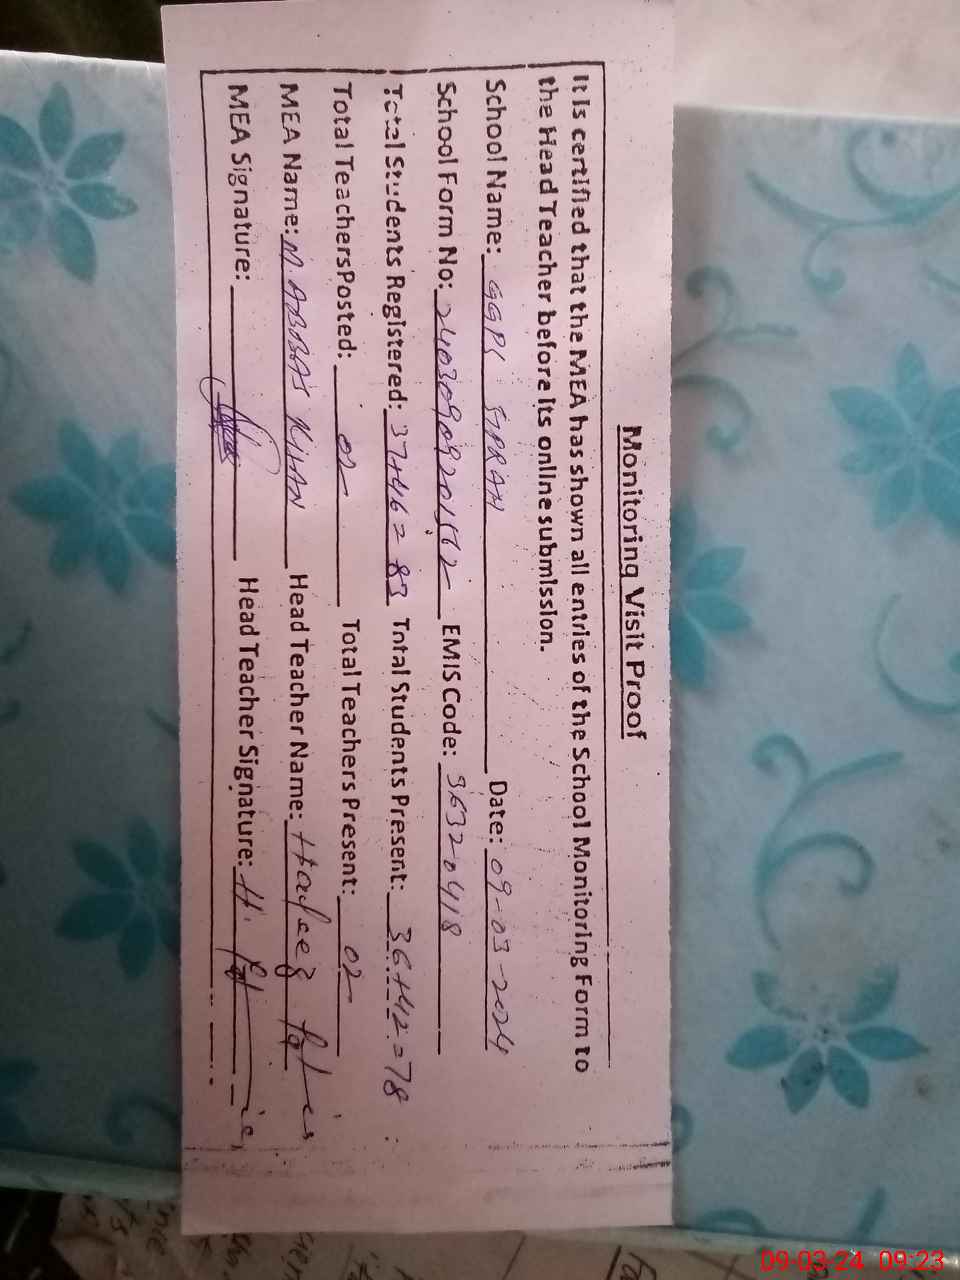 Monitoring Visit Proof
It is certified that the MEA has shown all entries of the School Monitoring Form to
the Head Teacher before its online submission.
School Name: GGPS Date: 09-03-2024
School Form No: EMIS Code: 36320418
Total Students Registered: 37+46=83 Total Students Present: 36+42=78
Total TeachersPosted: 02 Total Teachers Present: 02
MEA Name: M. ABBAS KHAN Head Teacher Name:
MEA Signature: Head Teacher Signature:
09-03-24 09:23